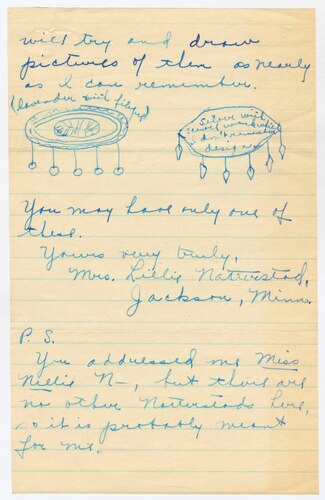 will try and draw
pictures of them as nearly
as I can remember.
(lavender with filigree)
Silver with
scroll work which
I don't remember
design
You may have only one of
these.
Yours very truly,
Mrs. Lillie Natterstad,
Jackson, Minn.
P. S.
You addressed me Miss
Nellie N—, but there are
no other Natterstads here,
so it is probably meant
for me.